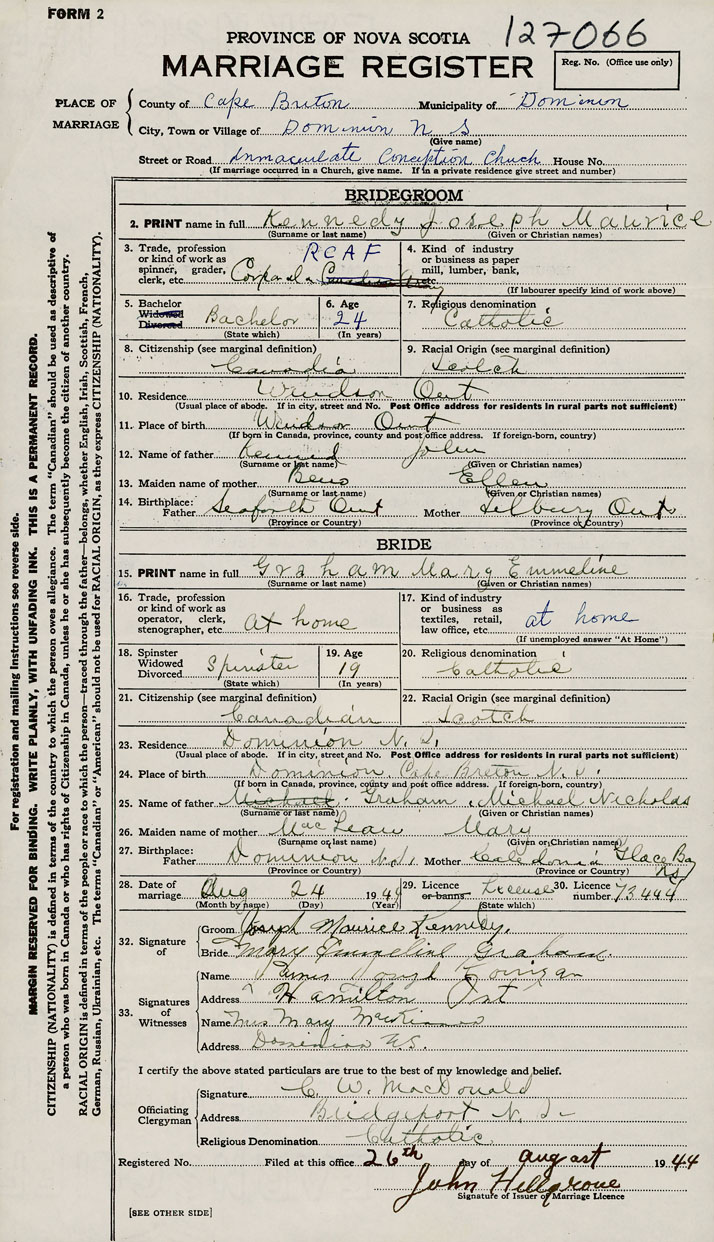 FORM 2
127066
PROVINCE OF NOVA SCOTIA
MARRIAGE REGISTER
Reg. No. (Office use only)
PLACE OF MARRIAGE
County of Cape Briton Municipality of Dominion
City, Town or Village of Dominion N S
(Give name)
Street or Road Immaculate Conception Chuch House No.
(If marriage occurred in a Church, give name. If in a private residence give street and number)
BRIDEGROOM
2. PRINT name in full Kennedy Joseph Maurice
(Surname or last name) (Given or Christian names)
3. Trade, profession or kind of work as spinner, grader, clerk, etc. RCAF Corporal
4. Kind of industry or business as paper mill, lumber, bank, etc.
(If labourer specify kind of work above)
5. Bachelor Widowed Divorced Bachelor
(State which)
6. Age 24
(In years)
7. Religious denomination Catholic
8. Citizenship (see marginal definition) Canadia
9. Racial Origin (see marginal definition) Scotch
10. Residence Windson Ont
(Usual place of abode. If in city, street and No. Post Office address for residents in rural parts not sufficient)
11. Place of birth Windsor Ont
(If born in Canada, province, county and post office address. If foreign-born, country)
12. Name of father John
(Surname or last name) (Given or Christian names)
13. Maiden name of mother Ellen
(Surname or last name) (Given or Christian names)
14. Birthplace: Father Seaforth Ont Mother Ont
(Province or Country) (Province or Country)
BRIDE
15. PRINT name in full Graham Mary Emmeline
(Surname or last name) (Given or Christian names)
16. Trade, profession or kind of work as operator, clerk, stenographer, etc. at home
17. Kind of industry or business as textiles, retail, law office, etc. at home
(If unemployed answer "At Home")
18. Spinster Widowed Divorced Spinister
(State which)
19. Age 19
(In years)
20. Religious denomination Catholic
21. Citizenship (see marginal definition) Canadian
22. Racial Origin (see marginal definition) Scotch
23. Residence Dominion N.S.
(Usual place of abode. If in city, street and No. Post Office address for residents in rural parts not sufficient)
24. Place of birth Dominion, Cape Breton N.S.
(If born in Canada, province, county and post office address. If foreign-born, country)
25. Name of father Michael Graham, Michael Nicholas
(Surname or last name) (Given or Christian names)
26. Maiden name of mother MacLean Mary
(Surname or last name) (Given or Christian names)
27. Birthplace: Father Dominion N.S. Mother Caledonia Glace Bay NS
(Province or Country) (Province or Country)
28. Date of marriage Aug 24 1944
(Month by name) (Day) (Year)
29. Licence or banns License
(State which)
30. Licence number 73444
32. Signature of
Groom Joseph Maurice Kennedy.
Bride Mary Emmeline Graham.
33. Signatures of Witnesses
Name Joseph
Address Hamilton Ont
Name Mrs Mary
Address Dominion N.S.
I certify the above stated particulars are true to the best of my knowledge and belief.
Officiating Clergyman
Signature C. W. MacDonald
Address Bridgeport N.S.
Religious Denomination Catholic
Registered No. Filed at this office 26th day of august 1944
John Hillgrove
Signature of Issuer of Marriage Licence
[SEE OTHER SIDE]
For registration and mailing instructions see reverse side.
MARGIN RESERVED FOR BINDING. WRITE PLAINLY, WITH UNFADING INK. THIS IS A PERMANENT RECORD.
CITIZENSHIP (NATIONALITY) is defined in terms of the country to which the person owes allegiance. The term "Canadian" should be used as descriptive of
a person who was born in Canada or who has rights of Citizenship in Canada, unless he or she has subsequently become the citizen of another country.
RACIAL ORIGIN is defined in terms of the people or race to which the person—traced through the father—belongs, whether English, Irish, Scottish, French,
German, Russian, Ukrainian, etc. The terms "Canadian" or "American" should not be used for RACIAL ORIGIN, as they express CITIZENSHIP (NATIONALITY).